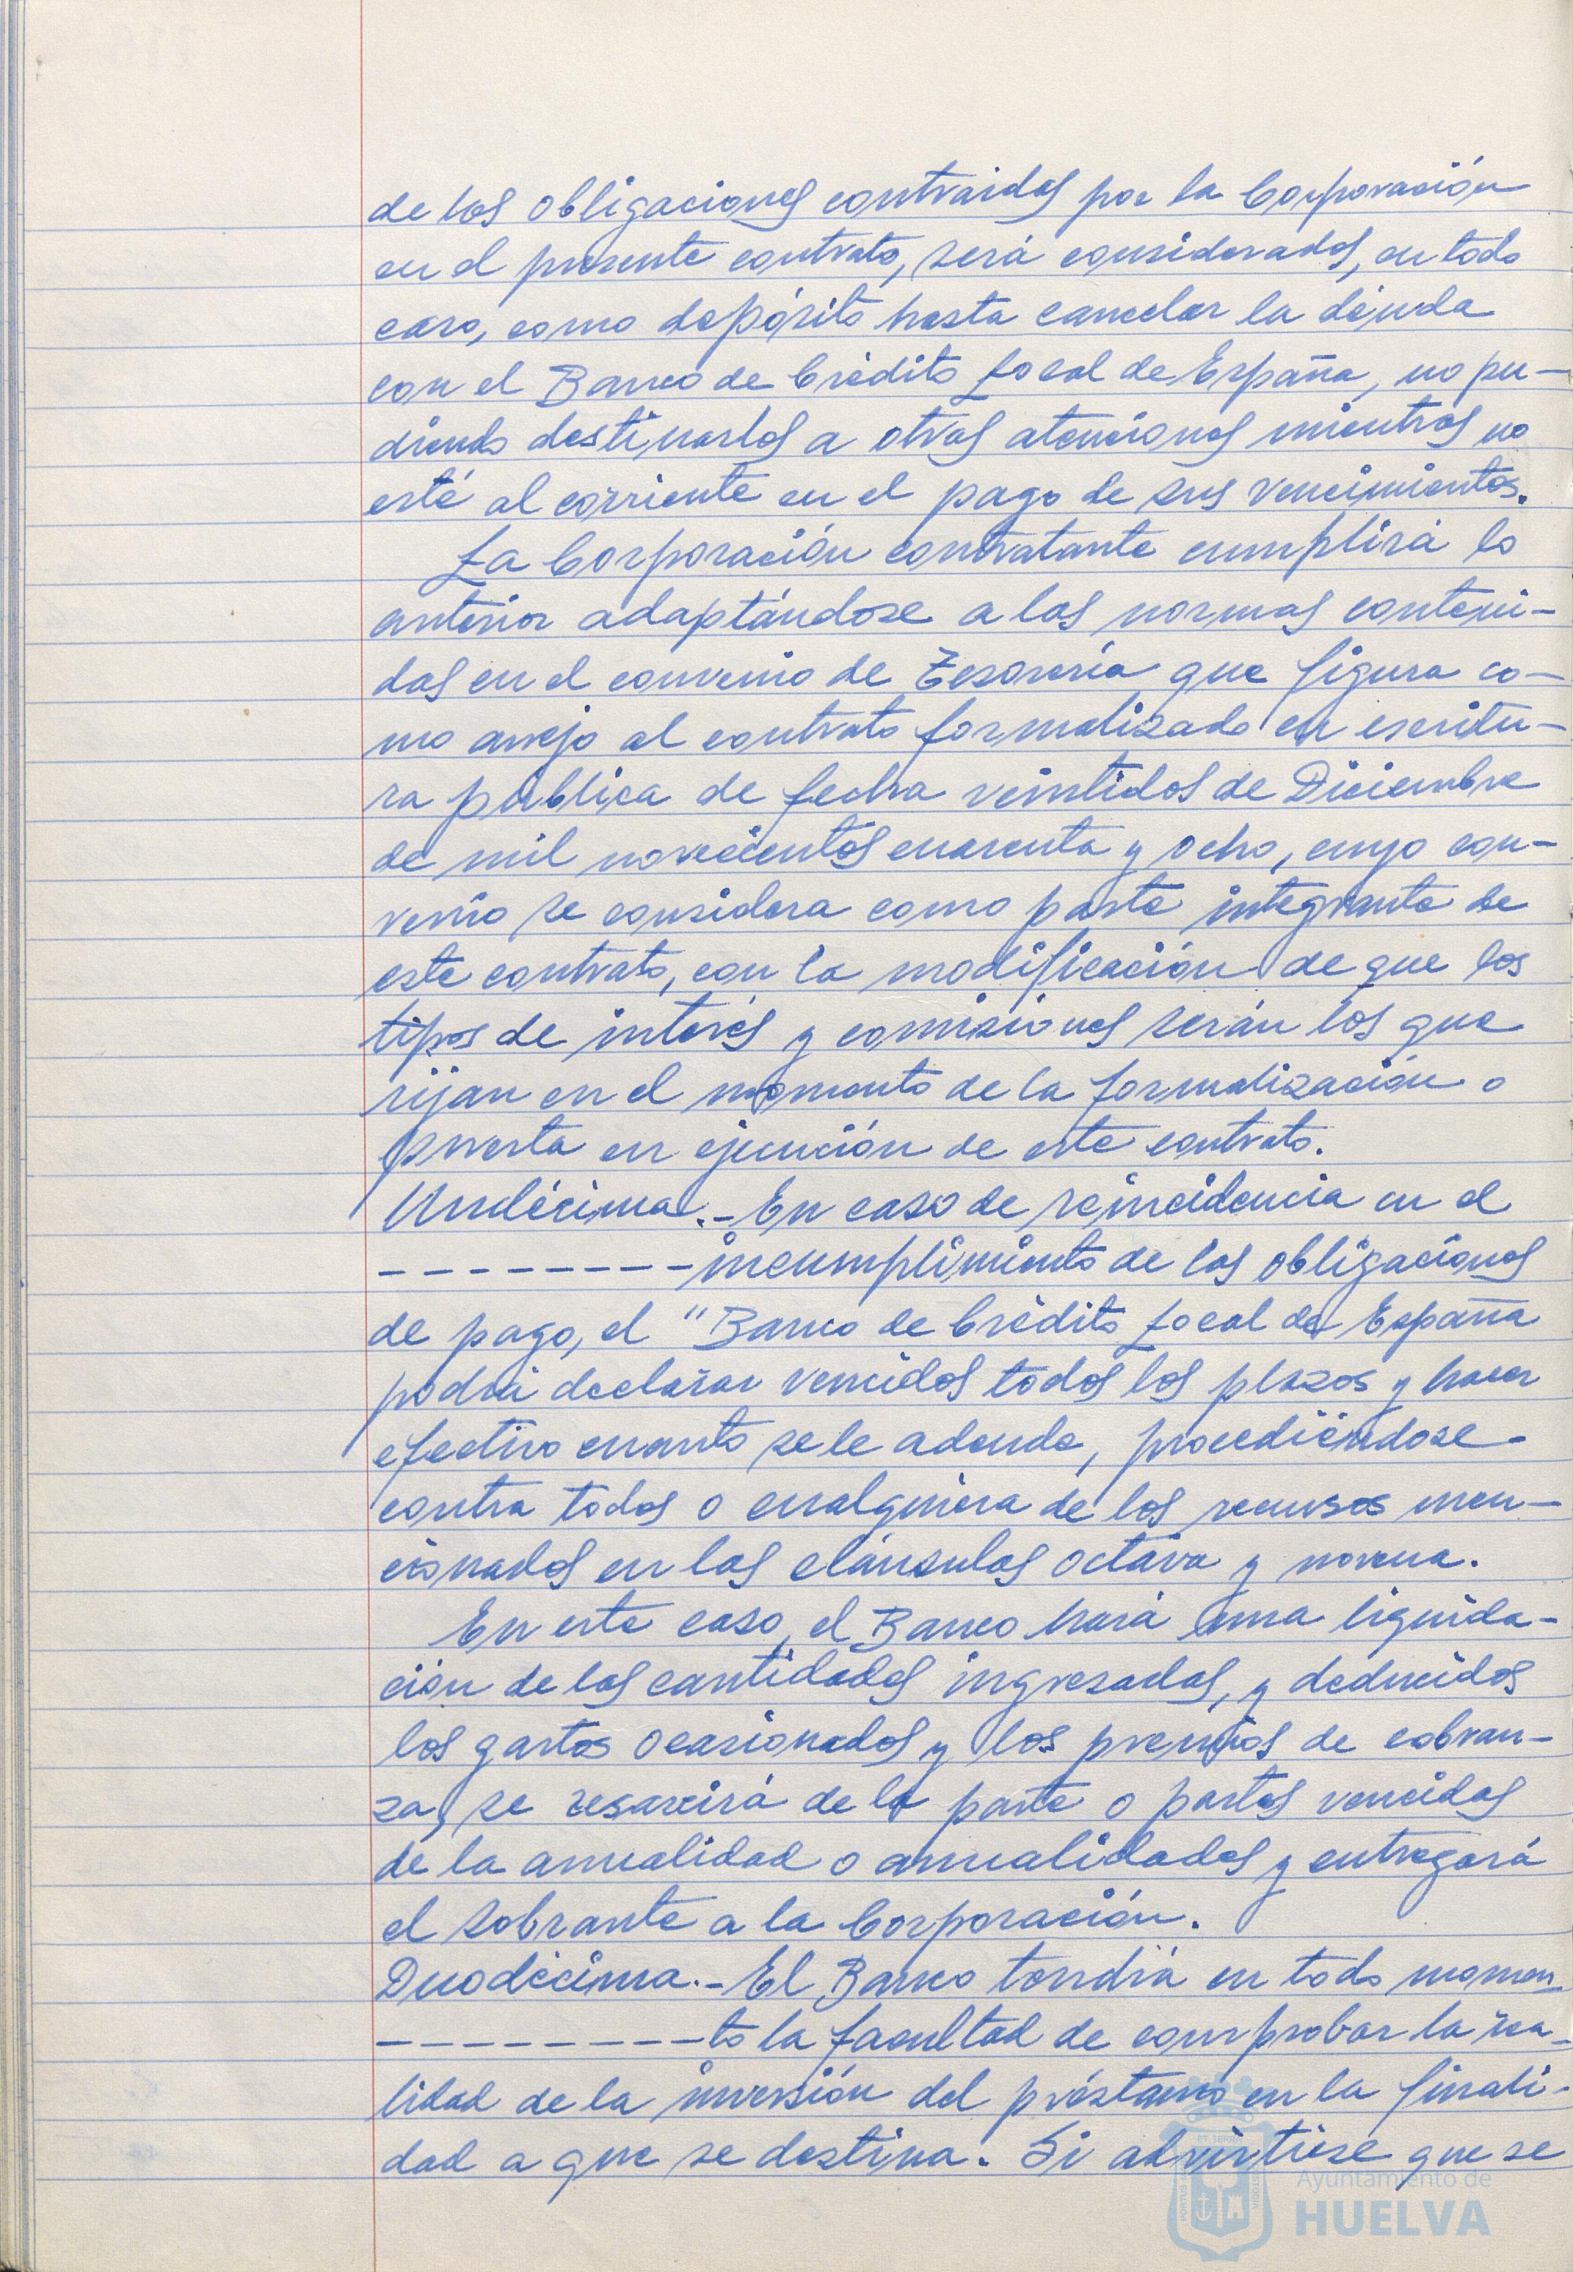 de las obligaciones contraidas por la Corporación
en el presente contrato, será considerados, en todo
caso, como depósito hasta cancelar la déuda
con el Banco de Crédito Local de España, no pu-
diendo destinarlos a otras atenciones mientras no
esté al corriente en el pago de sus vencimientos.
La Corporación contratante cumplirá lo
anterior adaptándose a las normas conteni-
das en el convenio de Tesorería que figura co-
mo anejo al contrato formalizado en escritu-
ra pública de fecha veintidos de Diciembre
de mil novecientos cuarenta y ocho, cuyo con-
venio se considera como parte integrante de
este contrato, con la modificación de que los
tipos de interés y comisiones serán los que
rijan en el momento de la formalización o
puesta en ejecución de este contrato.
Undécima.- En caso de reincidencia en el
--------- incumplimiento de las obligaciones
de pago, el "Banco de Crédito Local de España
podrá declarar vencidos todos los plazos y hacer
efectivo cuanto se le adeude, procediéndose-
contra todos o cualquiera de los recursos men-
cionados en las cláusulas octava y novena.
En este caso, el Banco hará una liquida-
ción de las cantidades ingresadas, y deducidos
los gastos ocasionados y los premios de cobran-
za, se resarcirá de la parte o partes vencidas
de la anualidad o anualidades y entregará
el sobrante a la Corporación.
Duodécima.- El Banco tendrá en todo momen-
--------- to la facultad de comprobar la rea-
lidad de la inversión del préstamo en la finali-
dad a que se destina. Si advirtiese que se
Ayuntamiento de
HUELVA